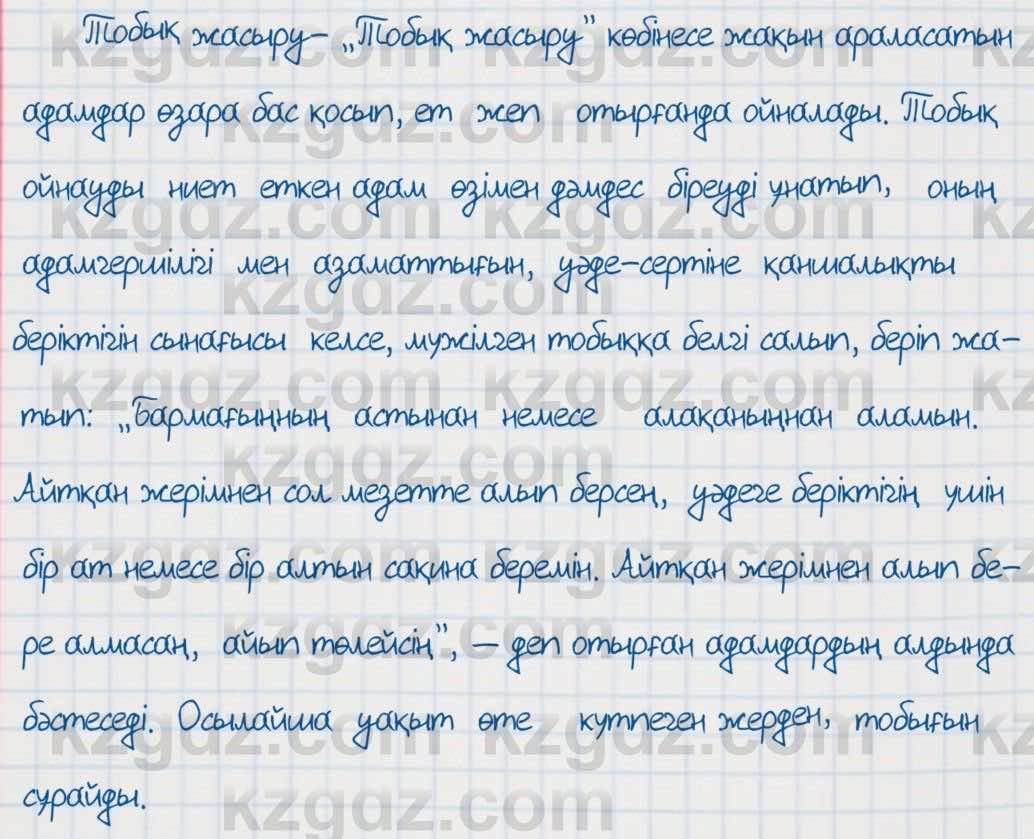 Тобық жасыру– „Тобық жасыру” көбінесе жақын араласатын
адамдар өзара бас қосып, ет жеп отырғанда ойналады. Тобық
ойнауды ниет еткен адам өзімен дәмдес біреуді ұнатып, оның
адамгершілігі мен азаматтығын, уәде-сертіне қаншалықты
беріктігін сынағысы келсе, мүжілген тобыққа белгі салып, беріп жа-
тып: „Бармағыңның астынан немесе алақаныңнан аламын.
Айтқан жерімнен сол мезетте алып берсең, уәдеге беріктігің үшін
бір ат немесе бір алтын сақина беремін. Айтқан жерімнен алып бе-
ре алмасаң, айып төлейсің”, – деп отырған адамдардың алдында
бәстеседі. Осылайша уақыт өте күтпеген жерден, тобығын
сұрайды.
kzgdz.com